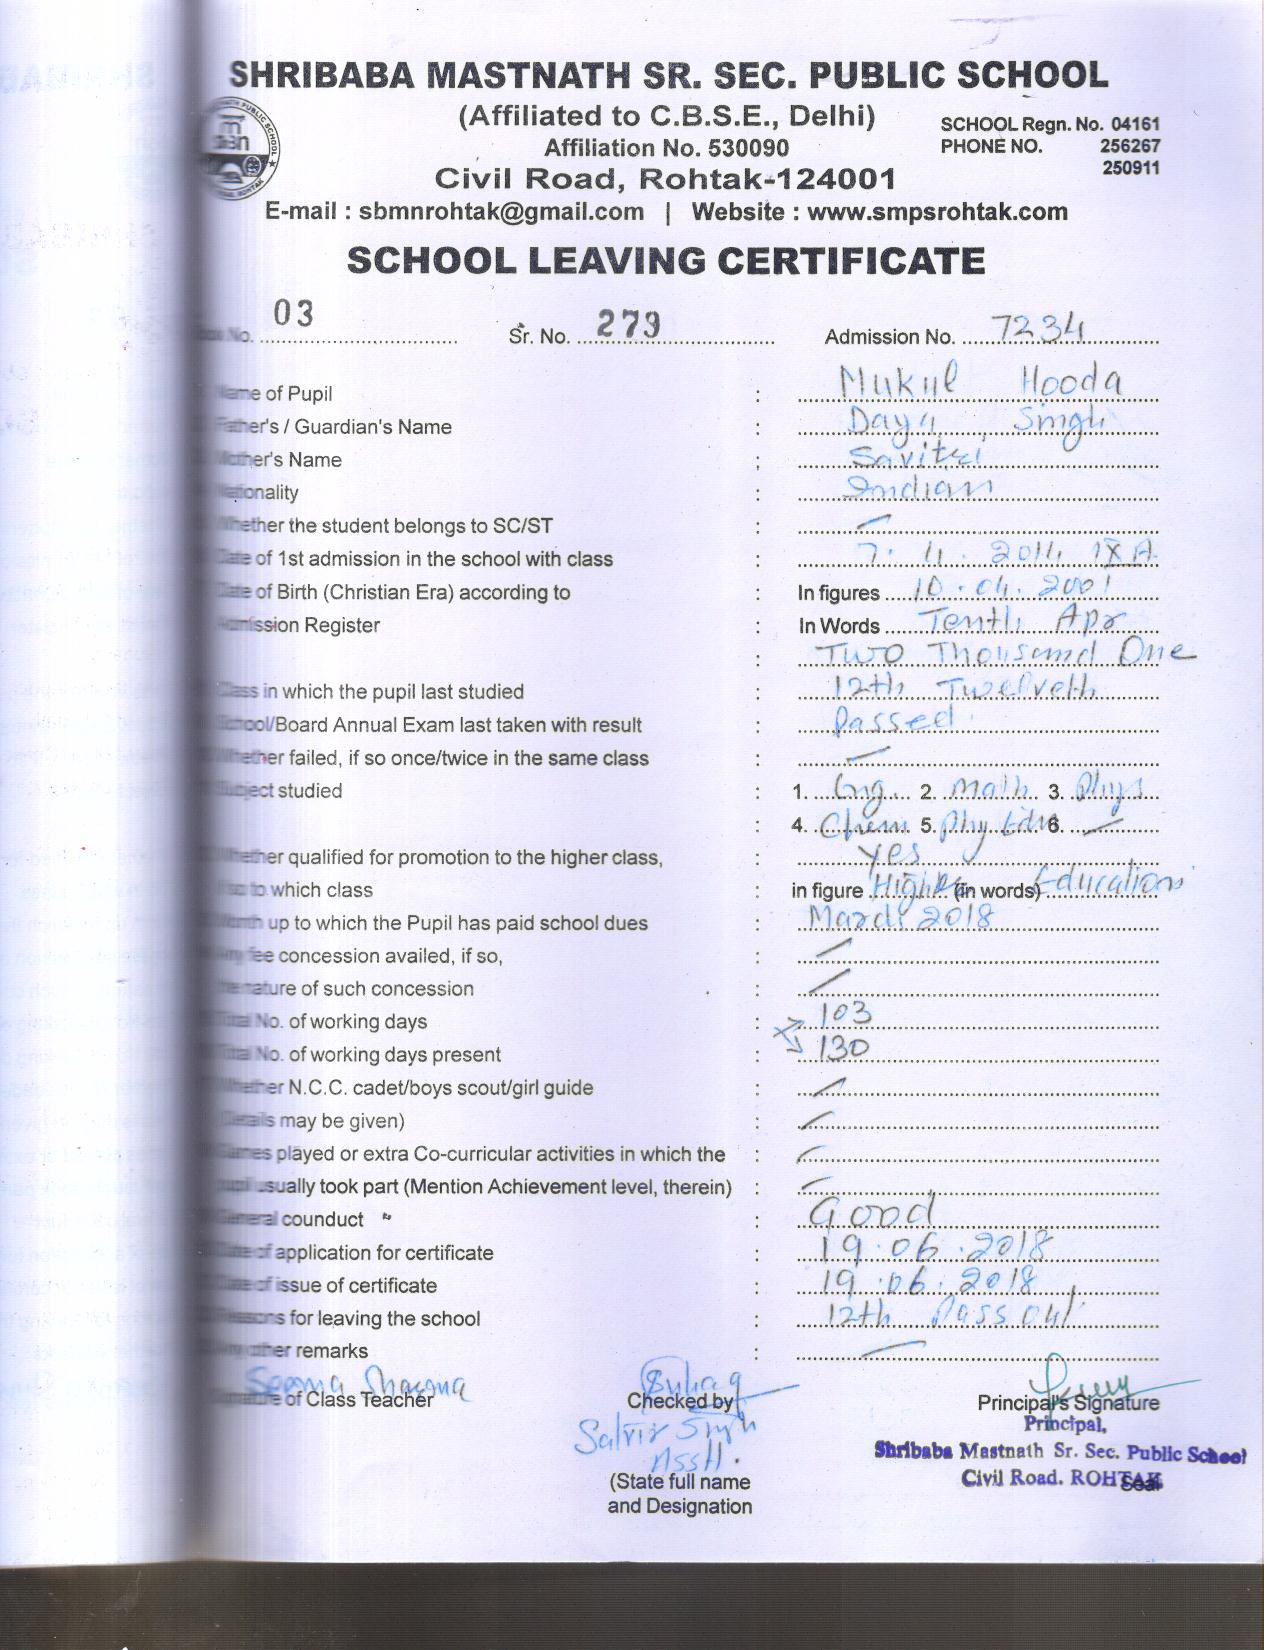 SHRIBABA MASTNATH SR. SEC. PUBLIC SCHOOL
(Affiliated to C.B.S.E., Delhi)
Affiliation No. 530090
SCHOOL Regn. No. 04161
PHONE NO. 256267
250911
Civil Road, Rohtak-124001
E-mail : sbmnrohtak@gmail.com | Website : www.smpsrohtak.com
SCHOOL LEAVING CERTIFICATE
No. 03 Sr. No. 279 Admission No. 7234
Name of Pupil : Mukul Hooda
Father's / Guardian's Name : Daya Singh
Mother's Name : Savitri
Nationality : Indian
Whether the student belongs to SC/ST : —
Date of 1st admission in the school with class : 7.4.2014 IX A
Date of Birth (Christian Era) according to : In figures 10.04.2001
Admission Register : In Words Tenth Apr
: Two Thousand One
Class in which the pupil last studied : 12th Twelveth
School/Board Annual Exam last taken with result : Passed
Whether failed, if so once/twice in the same class : —
Subject studied : 1. Eng. 2. Math 3. Phys
: 4. Chem 5. Phy Edu 6. —
Whether qualified for promotion to the higher class, : Yes
If so to which class : in figure Higher (in words) Education
Month up to which the Pupil has paid school dues : March 2018
Any fee concession availed, if so, : —
the nature of such concession : —
Total No. of working days : 103
Total No. of working days present : 130
Whether N.C.C. cadet/boys scout/girl guide : —
(Details may be given) : —
Games played or extra Co-curricular activities in which the : —
pupil usually took part (Mention Achievement level, therein) : —
General counduct : Good
Date of application for certificate : 19.06.2018
Date of issue of certificate : 19.06.2018
Reasons for leaving the school : 12th Pass Out
Any other remarks : —
Seema Sharma
Signature of Class Teacher Checked by Principal's Signature
Satvir Singh
Asstt.
(State full name
and Designation
Principal,
Shribaba Mastnath Sr. Sec. Public School
Civil Road. ROHTAK
Seal